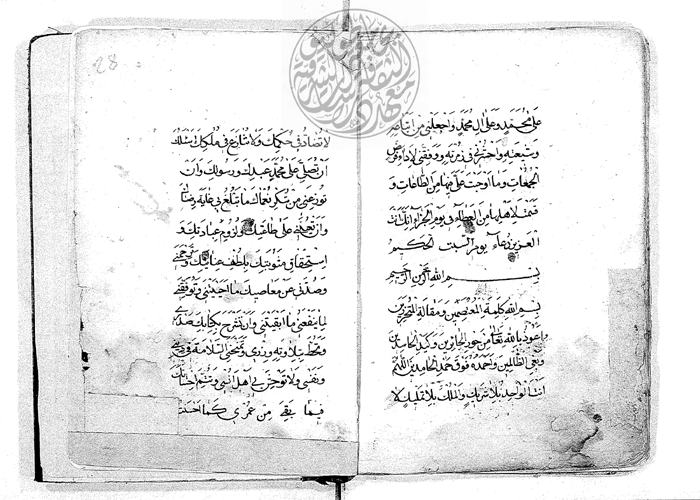 على محمد وعلى ال محمد واجعلني من اتباعه
وشيعته واحشرني في زمرته ووفقني لاداء فرض
الجمعات وما اوجبت علي فيها من الطاعات و
قسمت لاهلها من العطاء في يوم الجزاء انك انت
العزيز الحكيم دعاء يوم السبت
بسم الله الرحمن الرحيم
بسم الله كلمة المعتصمين ومقالة المتحرزين
واعوذ بالله تعالى من جور الجائرين وكيد الحاسدين
وبغي الظالمين واحمده فوق حمد الحامدين اللهم
انت الواحد بلا شريك والملك بلا تمليك لا
28
لا تضاد في حكمك ولا تنازع في ملكك اسئلك
ان تصلي على محمد عبدك ورسولك وان
توزعني من شكر نعماك ما تبلغ بي غاية رضاك
وان تعينني على طاعتك ولزوم عبادتك و
استحقاق مثوبتك بلطف عنايتك وترحمني
وصدني عن معاصيك ما احييتني وتوفقني
لما ينفعني ما ابقيتني وان تشرح بكتابك صدري
وتحط بتلاوته وزري وتمنحني السلامة في ديني
ونفسي ولا توحش بي اهل انسي وتتم احسانك
فيما بقي من عمري كما احسنت